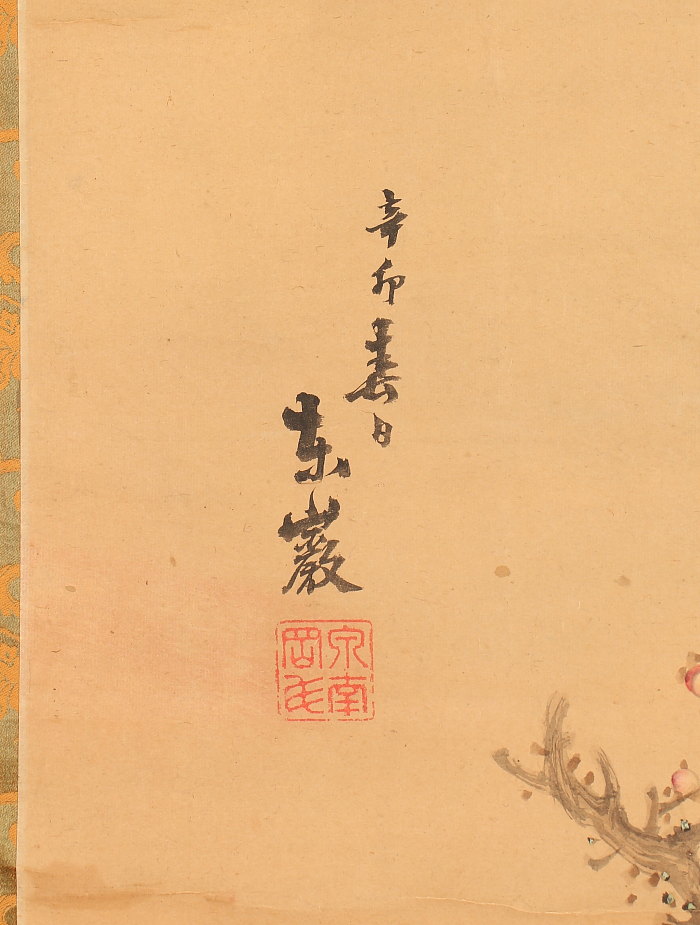 辛卯春日
東巖
泉南
岡氏